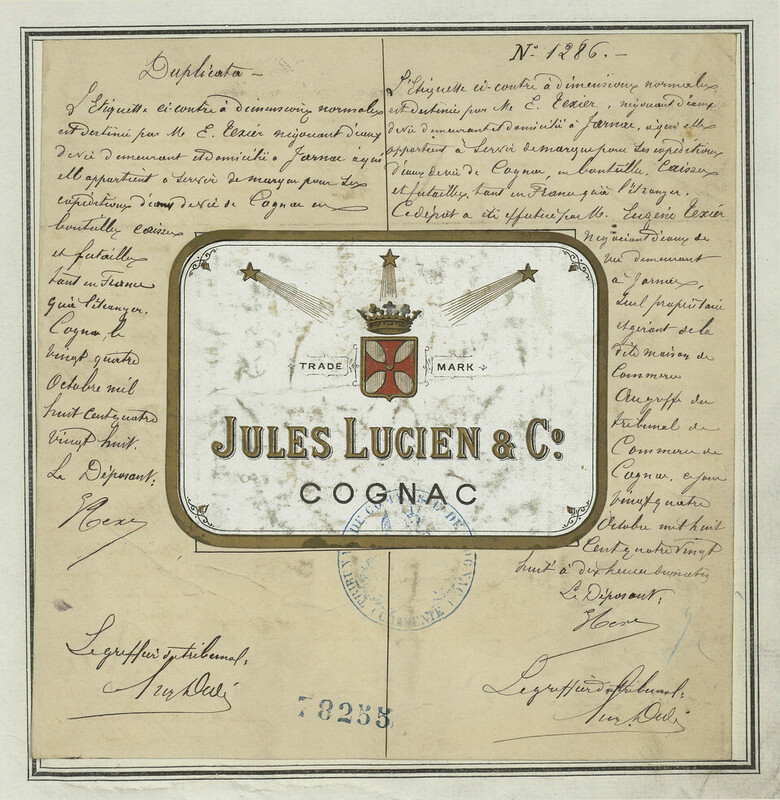 Duplicata
L'Etiquette ci-contre à dimensions normales
est destinée par M E. Texier négociant d'eaux
de vie demeurant et domicilié à Jarnac à qui
elle appartient à servir de marque pour ses
expéditions d'eaux de vie de Cognac en
bouteilles caisses
et futailles
tant en France
qu'à l'étranger.
Cognac, le
vingt quatre
Octobre mil
huit cent quatre
vingt huit.
Le Déposant.
Le greffier du tribunal,
N° 1286.-
L'Etiquette ci-contre à dimensions normales
est destinée par M E. Texier, négociant d'eaux
de vie demeurant et domicilié à Jarnac, à qui elle
appartient à servir de marque pour ses expéditions
d'eaux de vie de Cognac, en bouteilles, Caisses
et futailles, tant en France qu'à l'étranger.
Ce dépôt a été effectué par M. Eugène Texier
négociant d'eaux de
vie demeurant
à Jarnac,
seul propriétaire
et gérant de la
dite maison de
Commerce
Au greffe du
tribunal de
Commerce de
Cognac, ce jour
vingt quatre
Octobre mil huit
Cent quatre vingt
huit à dix heures du matin
Le Déposant,
Le greffier du tribunal,
TRADE MARK
JULES LUCIEN & Co.
COGNAC
78255